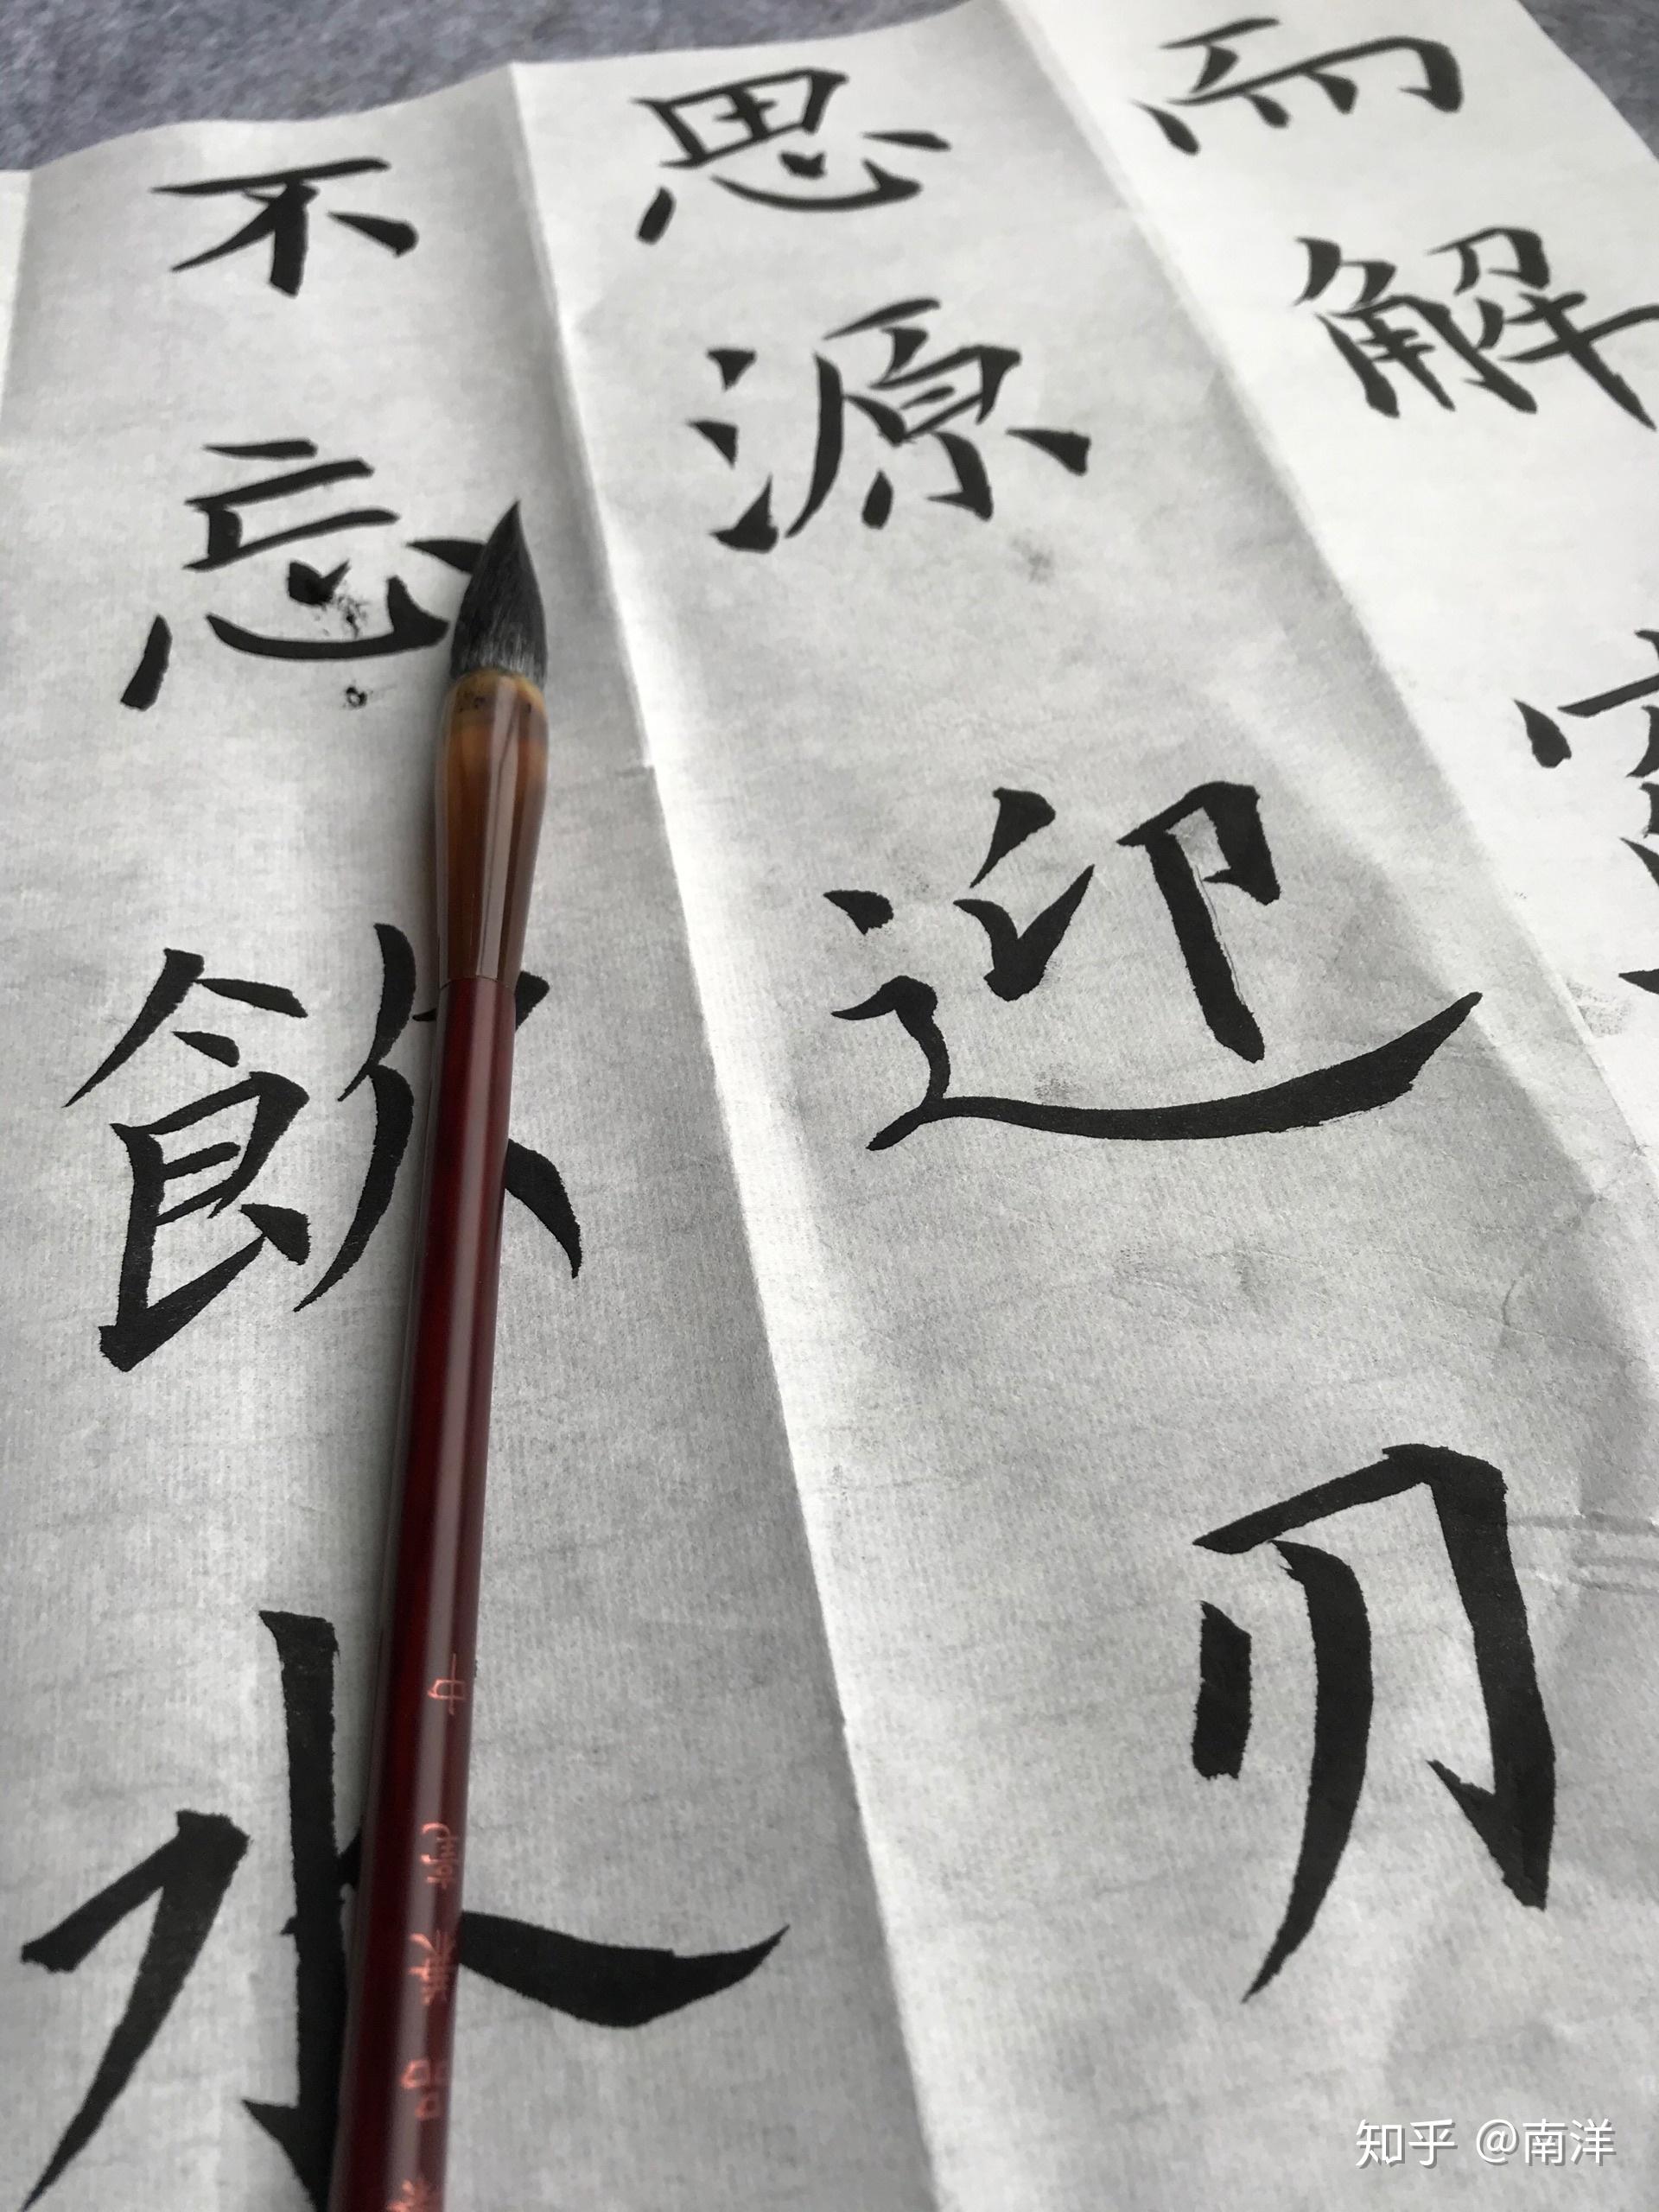 不忘飲水
思源迎刃
而解
知乎 @南洋